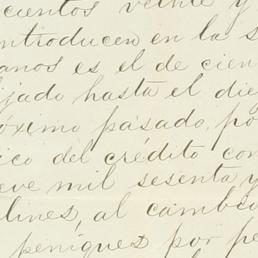 cientos veinte y
introducen en la s
anos es el de cien
ijado hasta el die
óximo pasado, po
ico del crédito con
eve mil sesenta y
lines, al cambio
peniques por pe